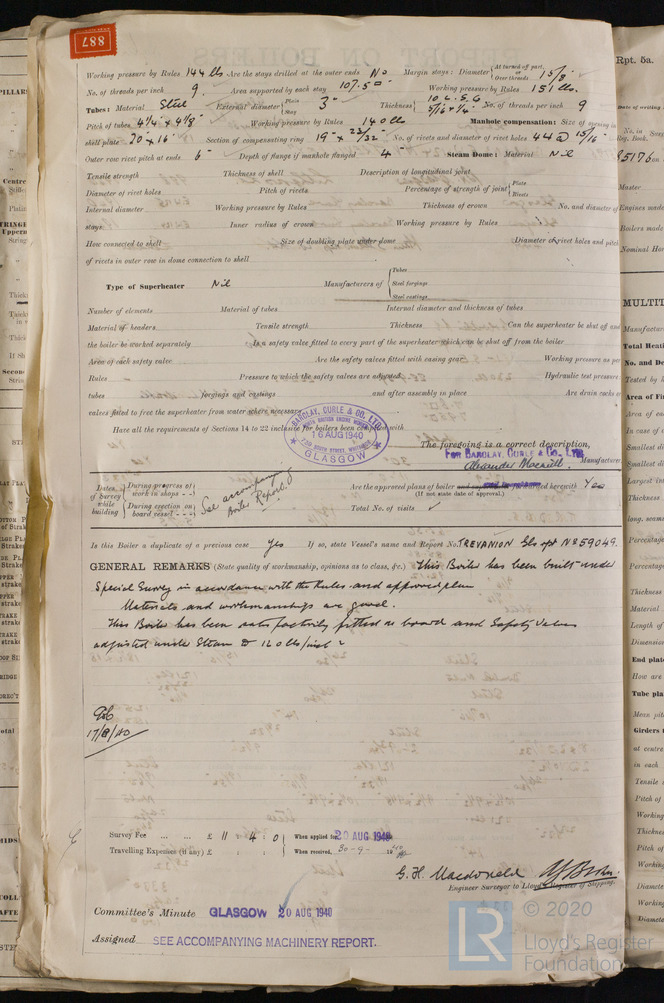 887
Working pressure by Rules 144 lbs Are the stays drilled at the outer ends No Margin stays: Diameter { At turned off part, or Over threads 1 5/8"
No. of threads per inch 9. Area supported by each stay Working pressure by Rules 151 lbs.
Tubes: Material Steel External diameter { Plain Stay 3" Thickness { 10 L.S.G 5/16" & 1/4" No. of threads per inch 9
Pitch of tubes 4 1/4" x 4 1/8" Working pressure by Rules 140 lbs Manhole compensation: Size of opening in
shell plate 20" x 16" Section of compensating ring 19" x 23/32" No. of rivets and diameter of rivet holes 44 @ 15/16"
Outer row rivet pitch at ends 6" Depth of flange if manhole flanged 4" Steam Dome: Material Nil
Tensile strength Thickness of shell Description of longitudinal joint
Diameter of rivet holes Pitch of rivets Percentage of strength of joint { Plate Rivets
Internal diameter Working pressure by Rules Thickness of crown No. and diameter of
stays Inner radius of crown Working pressure by Rules
How connected to shell Size of doubling plate under dome Diameter of rivet holes and pitch
of rivets in outer row in dome connection to shell
Type of Superheater Nil Manufacturers of { Tubes Steel forgings Steel castings
Number of elements Material of tubes Internal diameter and thickness of tubes
Material of headers Tensile strength Thickness Can the superheater be shut off and
the boiler be worked separately Is a safety valve fitted to every part of the superheater which can be shut off from the boiler
Area of each safety valve Are the safety valves fitted with easing gear Working pressure as per
Rules Pressure to which the safety valves are adjusted Hydraulic test pressure:
tubes forgings and castings and after assembly in place Are drain cocks or
valves fitted to free the superheater from water where necessary
Have all the requirements of Sections 14 to 22 inclusive for boilers been complied with
BARCLAY, CURLE & CO. LTD.
16 AUG 1940
GLASGOW
The foregoing is a correct description,
FOR BARCLAY, CURLE & CO., LTD.
Manufacturer
Dates of Survey while building { During progress of work in shops - - During erection on board vessel - - - See accompanying Boiler Report.
Are the approved plans of boiler forwarded herewith Yes
(If not state date of approval.)
Total No. of visits
Is this Boiler a duplicate of a previous case Yes If so, state Vessel's name and Report No. TREVANION Gls rpt No 59049.
GENERAL REMARKS (State quality of workmanship, opinions as to class, &c.) This Boiler has been built under
Special Survey in accordance with the Rules and approved plan
Materials and workmanship are good.
This Boiler has been satisfactorily fitted on board and Safety Valves
adjusted under Steam to 120 lbs/inch2
17/8/40
Survey Fee ... ... £ 11 4 : 0 When applied for 20 AUG 1940
Travelling Expenses (if any) £ : : When received, 30-9- 1940
G. H. Macdonald
Engineer Surveyor to Lloyd's Register of Shipping.
Committee's Minute GLASGOW 20 AUG 1940
Assigned SEE ACCOMPANYING MACHINERY REPORT.
Rpt. 5a.
85176
MULTIT
LR © 2020
Lloyd's Register
Foundation